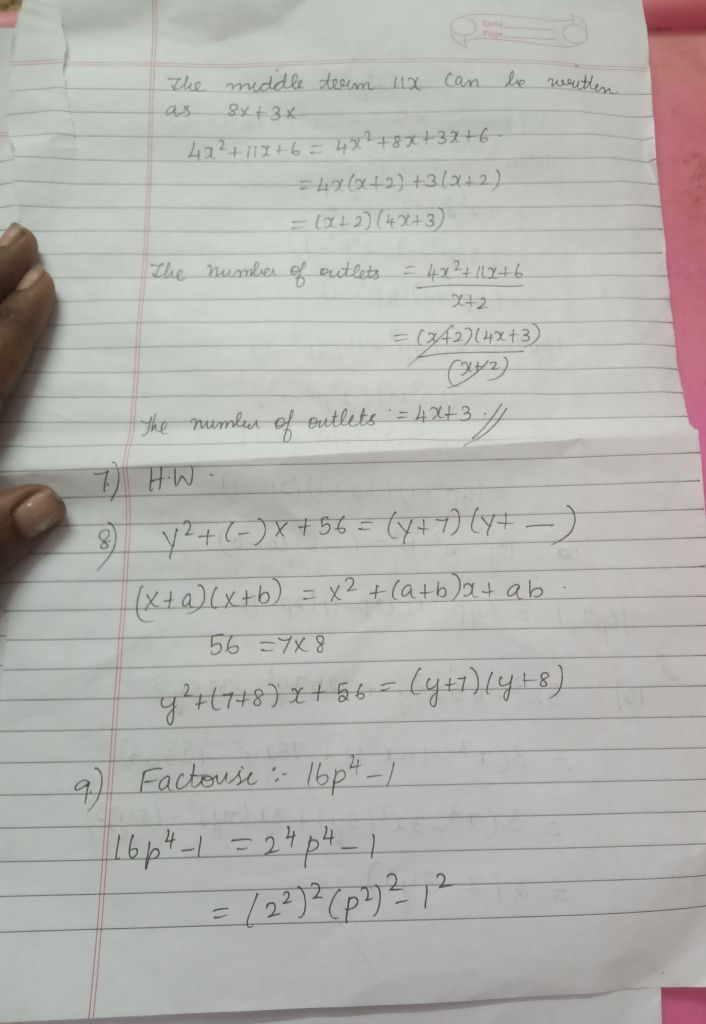 Date
Page
The middle term 11x can be written
as 8x+3x
4x²+11x+6 = 4x²+8x+3x+6.
= 4x(x+2)+3(x+2)
= (x+2)(4x+3)
The number of outlets = 4x²+11x+6
x+2
= (x+2)(4x+3)
(x+2)
The number of outlets = 4x+3 //
7.) H.W.
8) y²+(-)x+56 = (y+7)(y+ —)
(x+a)(x+b) = x²+(a+b)x+ab.
56 = 7×8
y²+(7+8)x+56 = (y+7)(y+8)
9.) Factorise :- 16p⁴-1
16p⁴-1 = 2⁴p⁴-1
= (2²)²(p²)²-1²